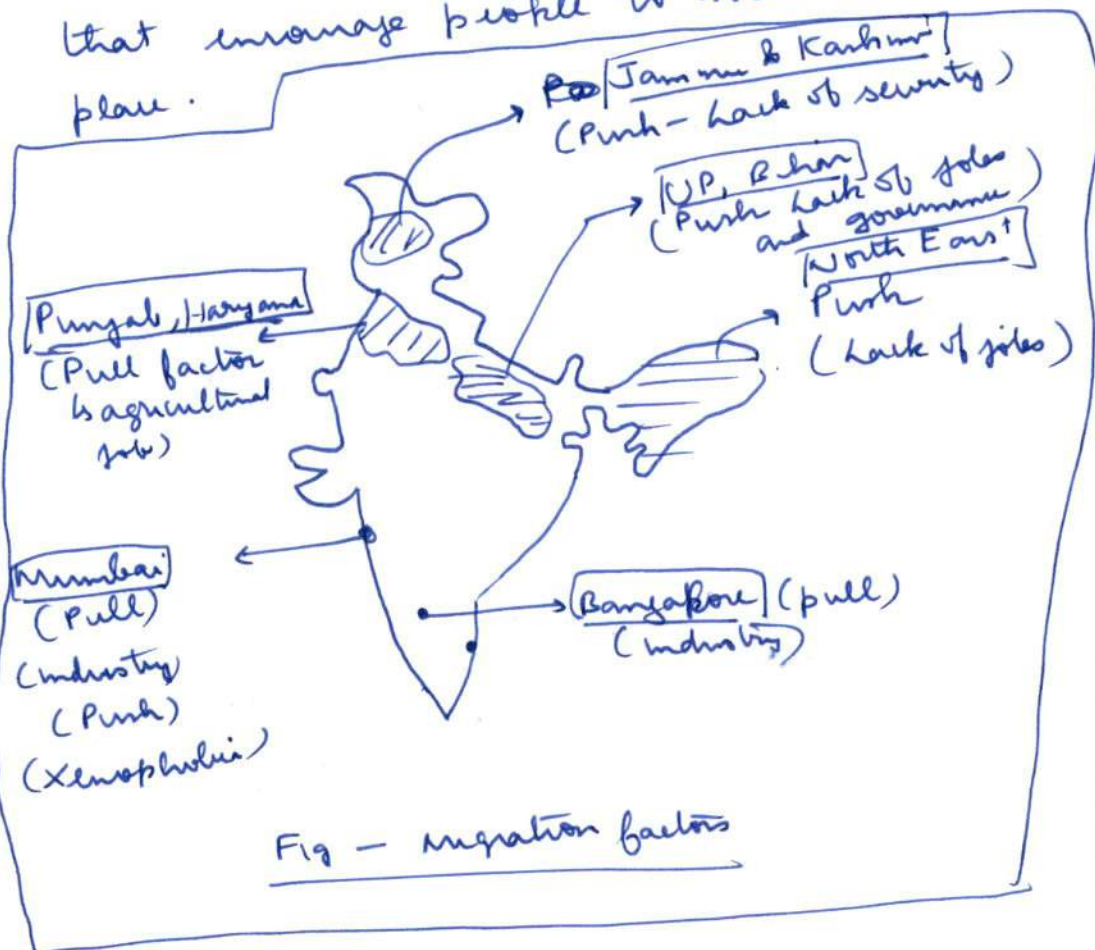 that encourage people to
place.
Jammu & Kashmir
(Push - Lack of security)
UP, Bihar
(Push Lack of jobs
and governance)
North East
Push
(Lack of jobs)
Punjab, Haryana
(Pull factor
is agricultural
job)
Mumbai
(Pull)
(industry
(Push)
(Xenophobia)
Bangalore (pull)
(industry)
Fig - Migration factors